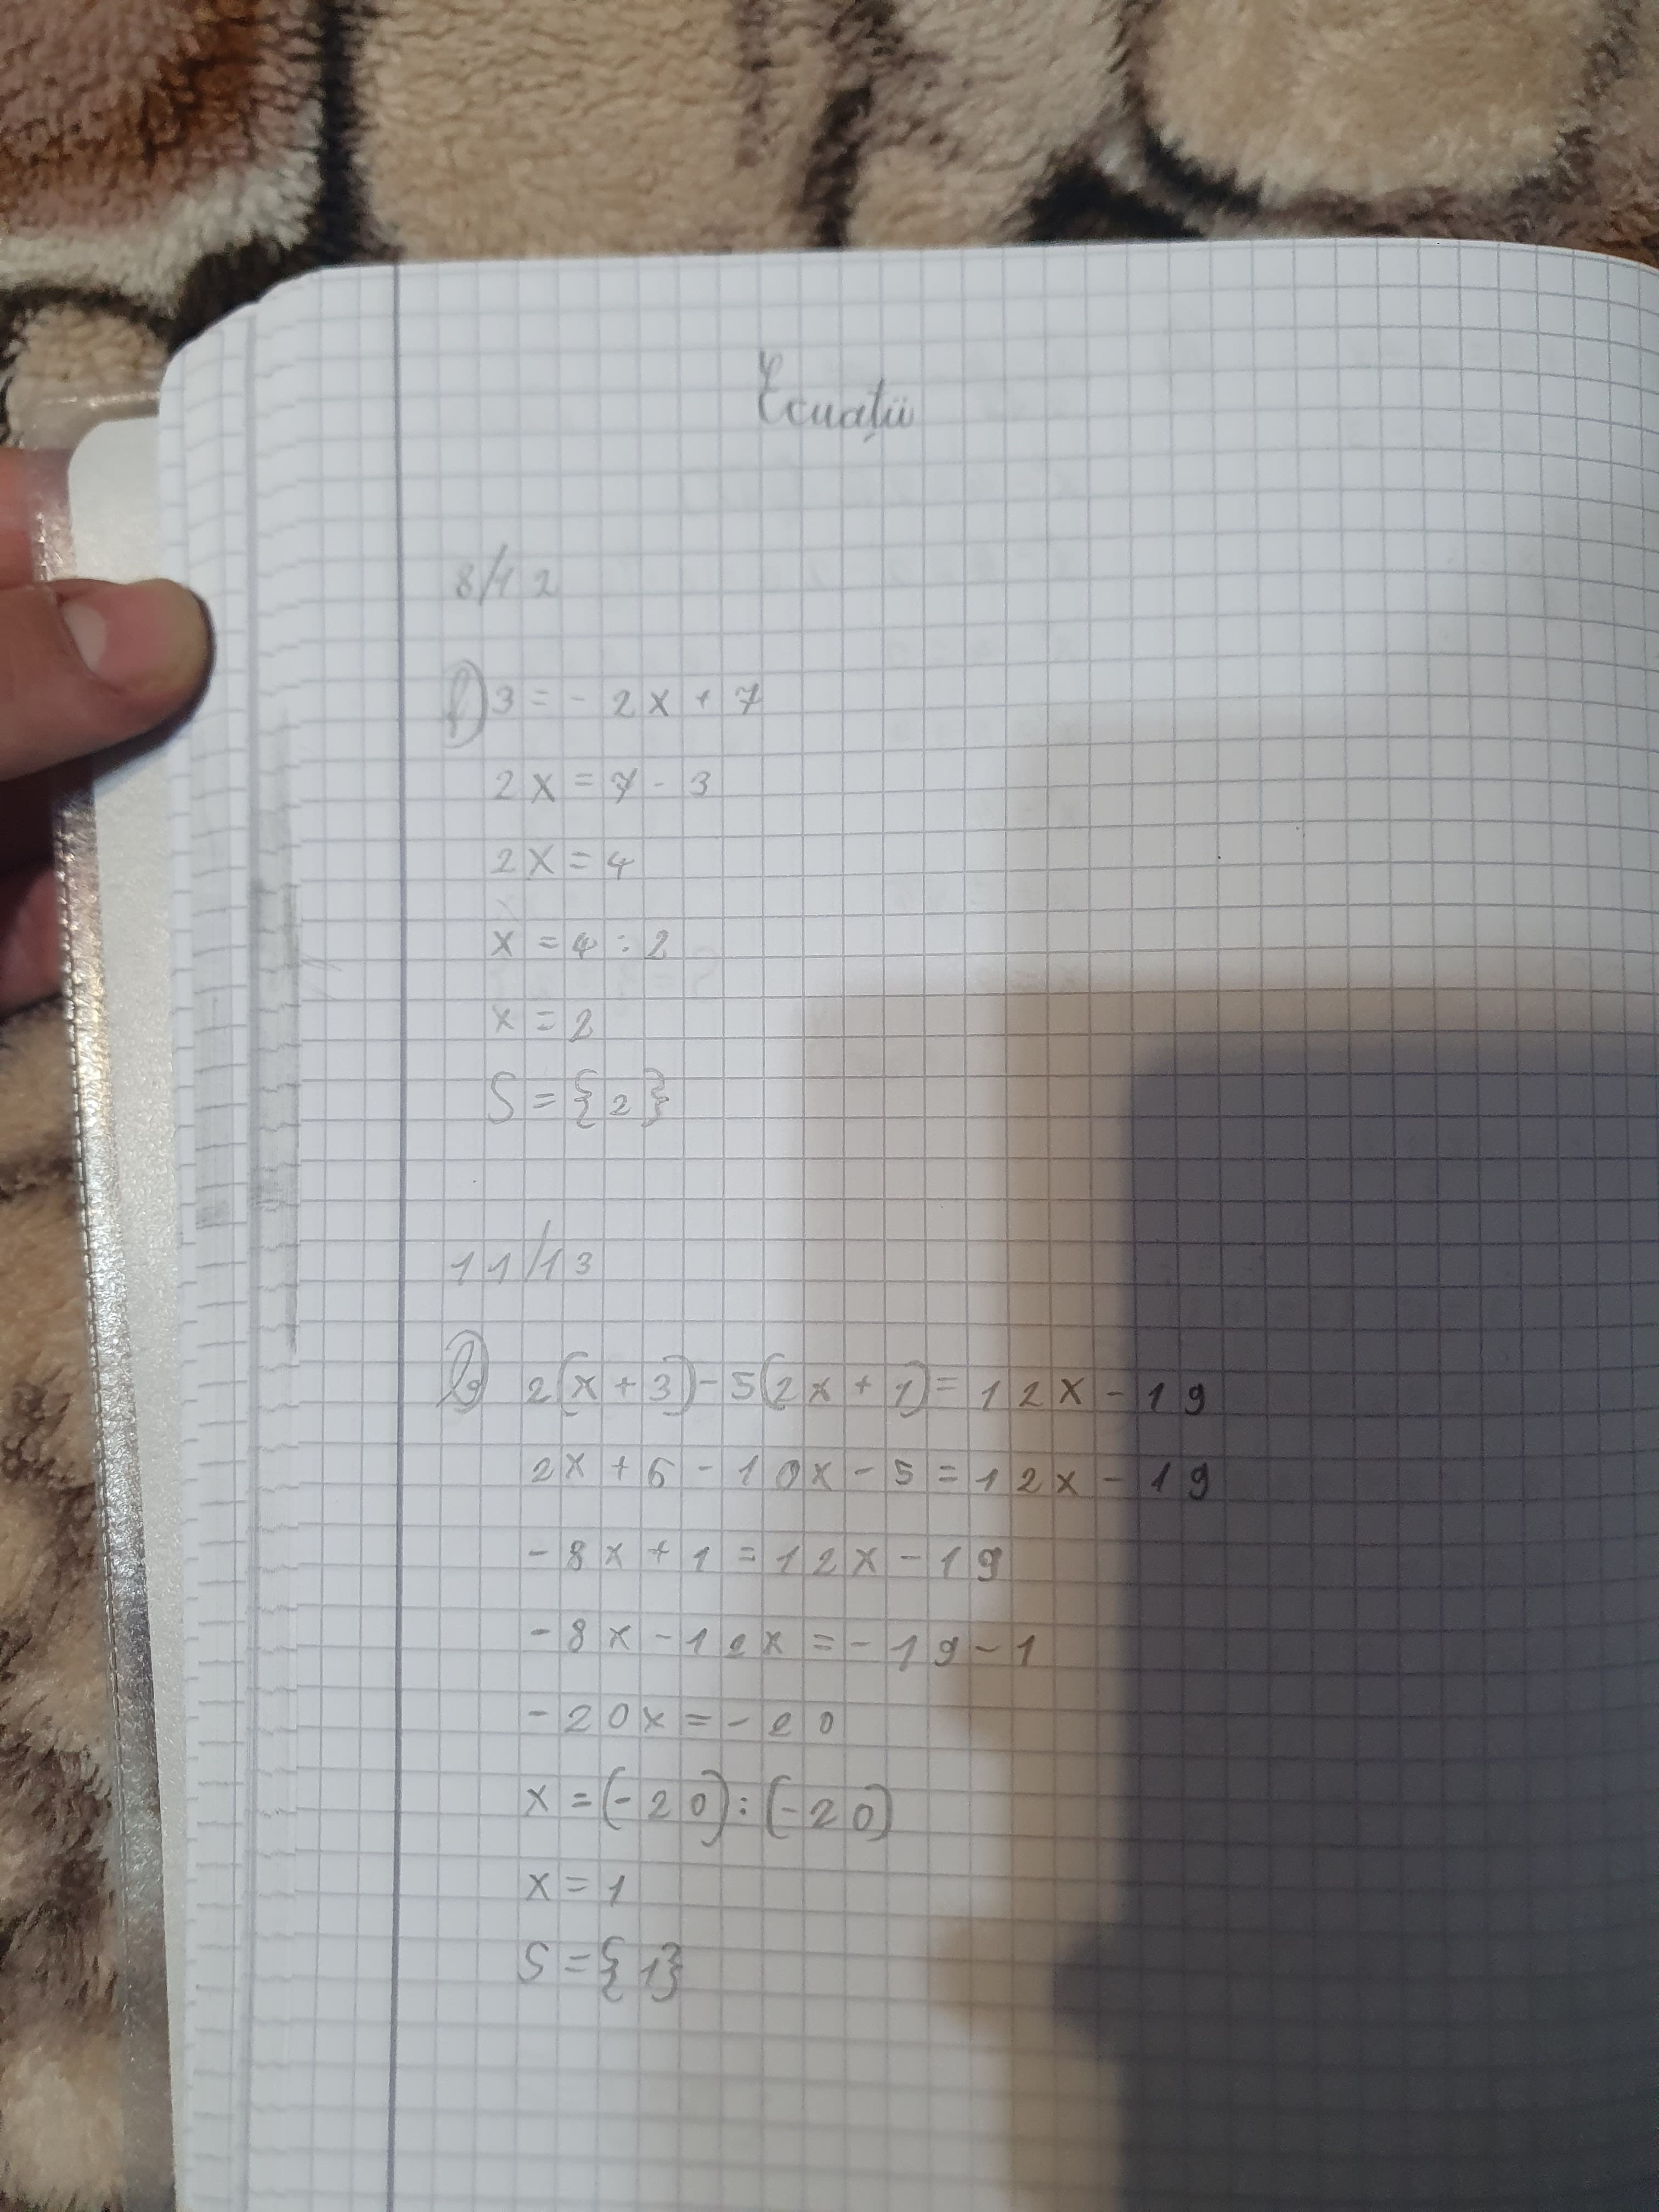 Ecuații
8/12
f) 3 = - 2x + 7
2x = 7 - 3
2x = 4
x = 4 : 2
x = 2
S = {2}
11/13
b) 2(x + 3) - 5(2x + 1) = 12x - 19
2x + 6 - 10x - 5 = 12x - 19
- 8x + 1 = 12x - 19
- 8x - 12x = - 19 - 1
- 20x = - 20
x = (- 20) : (- 20)
x = 1
S = {1}